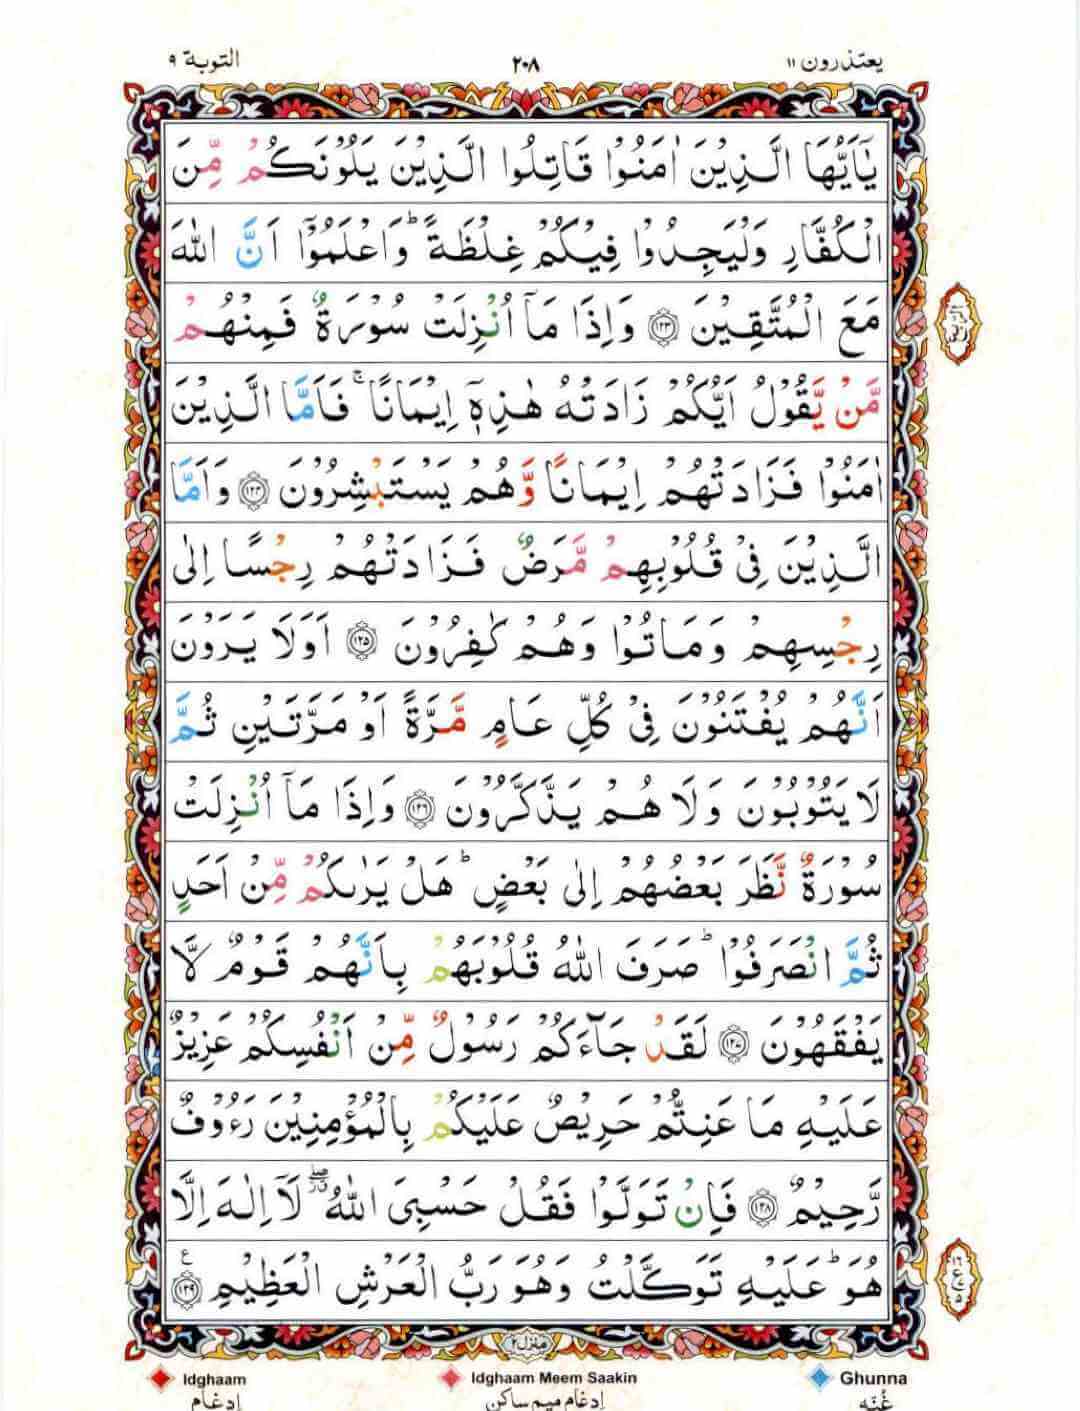 یعتذرون ۱۱ ۲۰۸ التوبة ۹
يٰۤاَيُّهَا الَّذِيْنَ اٰمَنُوْا قَاتِلُوا الَّذِيْنَ يَلُوْنَكُمْ مِّنَ
الْكُفَّارِ وَلْيَجِدُوْا فِيْكُمْ غِلْظَةً ؕ وَاعْلَمُوْۤا اَنَّ اللّٰهَ
مَعَ الْمُتَّقِيْنَ ﴿۱۲۳﴾ وَاِذَا مَاۤ اُنْزِلَتْ سُوْرَةٌ فَمِنْهُمْ
مَّنْ يَّقُوْلُ اَيُّكُمْ زَادَتْهُ هٰذِهٖۤ اِيْمَانًا ۚ فَاَمَّا الَّذِيْنَ
اٰمَنُوْا فَزَادَتْهُمْ اِيْمَانًا وَّهُمْ يَسْتَبْشِرُوْنَ ﴿۱۲۴﴾ وَاَمَّا
الَّذِيْنَ فِیْ قُلُوْبِهِمْ مَّرَضٌ فَزَادَتْهُمْ رِجْسًا اِلٰى
رِجْسِهِمْ وَمَاتُوْا وَهُمْ كٰفِرُوْنَ ﴿۱۲۵﴾ اَوَلَا يَرَوْنَ
اَنَّهُمْ يُفْتَنُوْنَ فِیْ كُلِّ عَامٍ مَّرَّةً اَوْ مَرَّتَيْنِ ثُمَّ
لَا يَتُوْبُوْنَ وَلَا هُمْ يَذَّكَّرُوْنَ ﴿۱۲۶﴾ وَاِذَا مَاۤ اُنْزِلَتْ
سُوْرَةٌ نَّظَرَ بَعْضُهُمْ اِلٰى بَعْضٍ ؕ هَلْ يَرٰىكُمْ مِّنْ اَحَدٍ
ثُمَّ انْصَرَفُوْا ؕ صَرَفَ اللّٰهُ قُلُوْبَهُمْ بِاَنَّهُمْ قَوْمٌ لَّا
يَفْقَهُوْنَ ﴿۱۲۷﴾ لَقَدْ جَآءَكُمْ رَسُوْلٌ مِّنْ اَنْفُسِكُمْ عَزِيْزٌ
عَلَيْهِ مَا عَنِتُّمْ حَرِيْصٌ عَلَيْكُمْ بِالْمُؤْمِنِيْنَ رَءُوْفٌ
رَّحِيْمٌ ﴿۱۲۸﴾ فَاِنْ تَوَلَّوْا فَقُلْ حَسْبِیَ اللّٰهُ ۖ لَاۤ اِلٰهَ اِلَّا
هُوَ ؕ عَلَيْهِ تَوَكَّلْتُ وَهُوَ رَبُّ الْعَرْشِ الْعَظِيْمِ ﴿۱۲۹﴾
منزل ۲
Idghaam Idghaam Meem Saakin Ghunna
إدغام إدغام ميم ساكن غُنّه